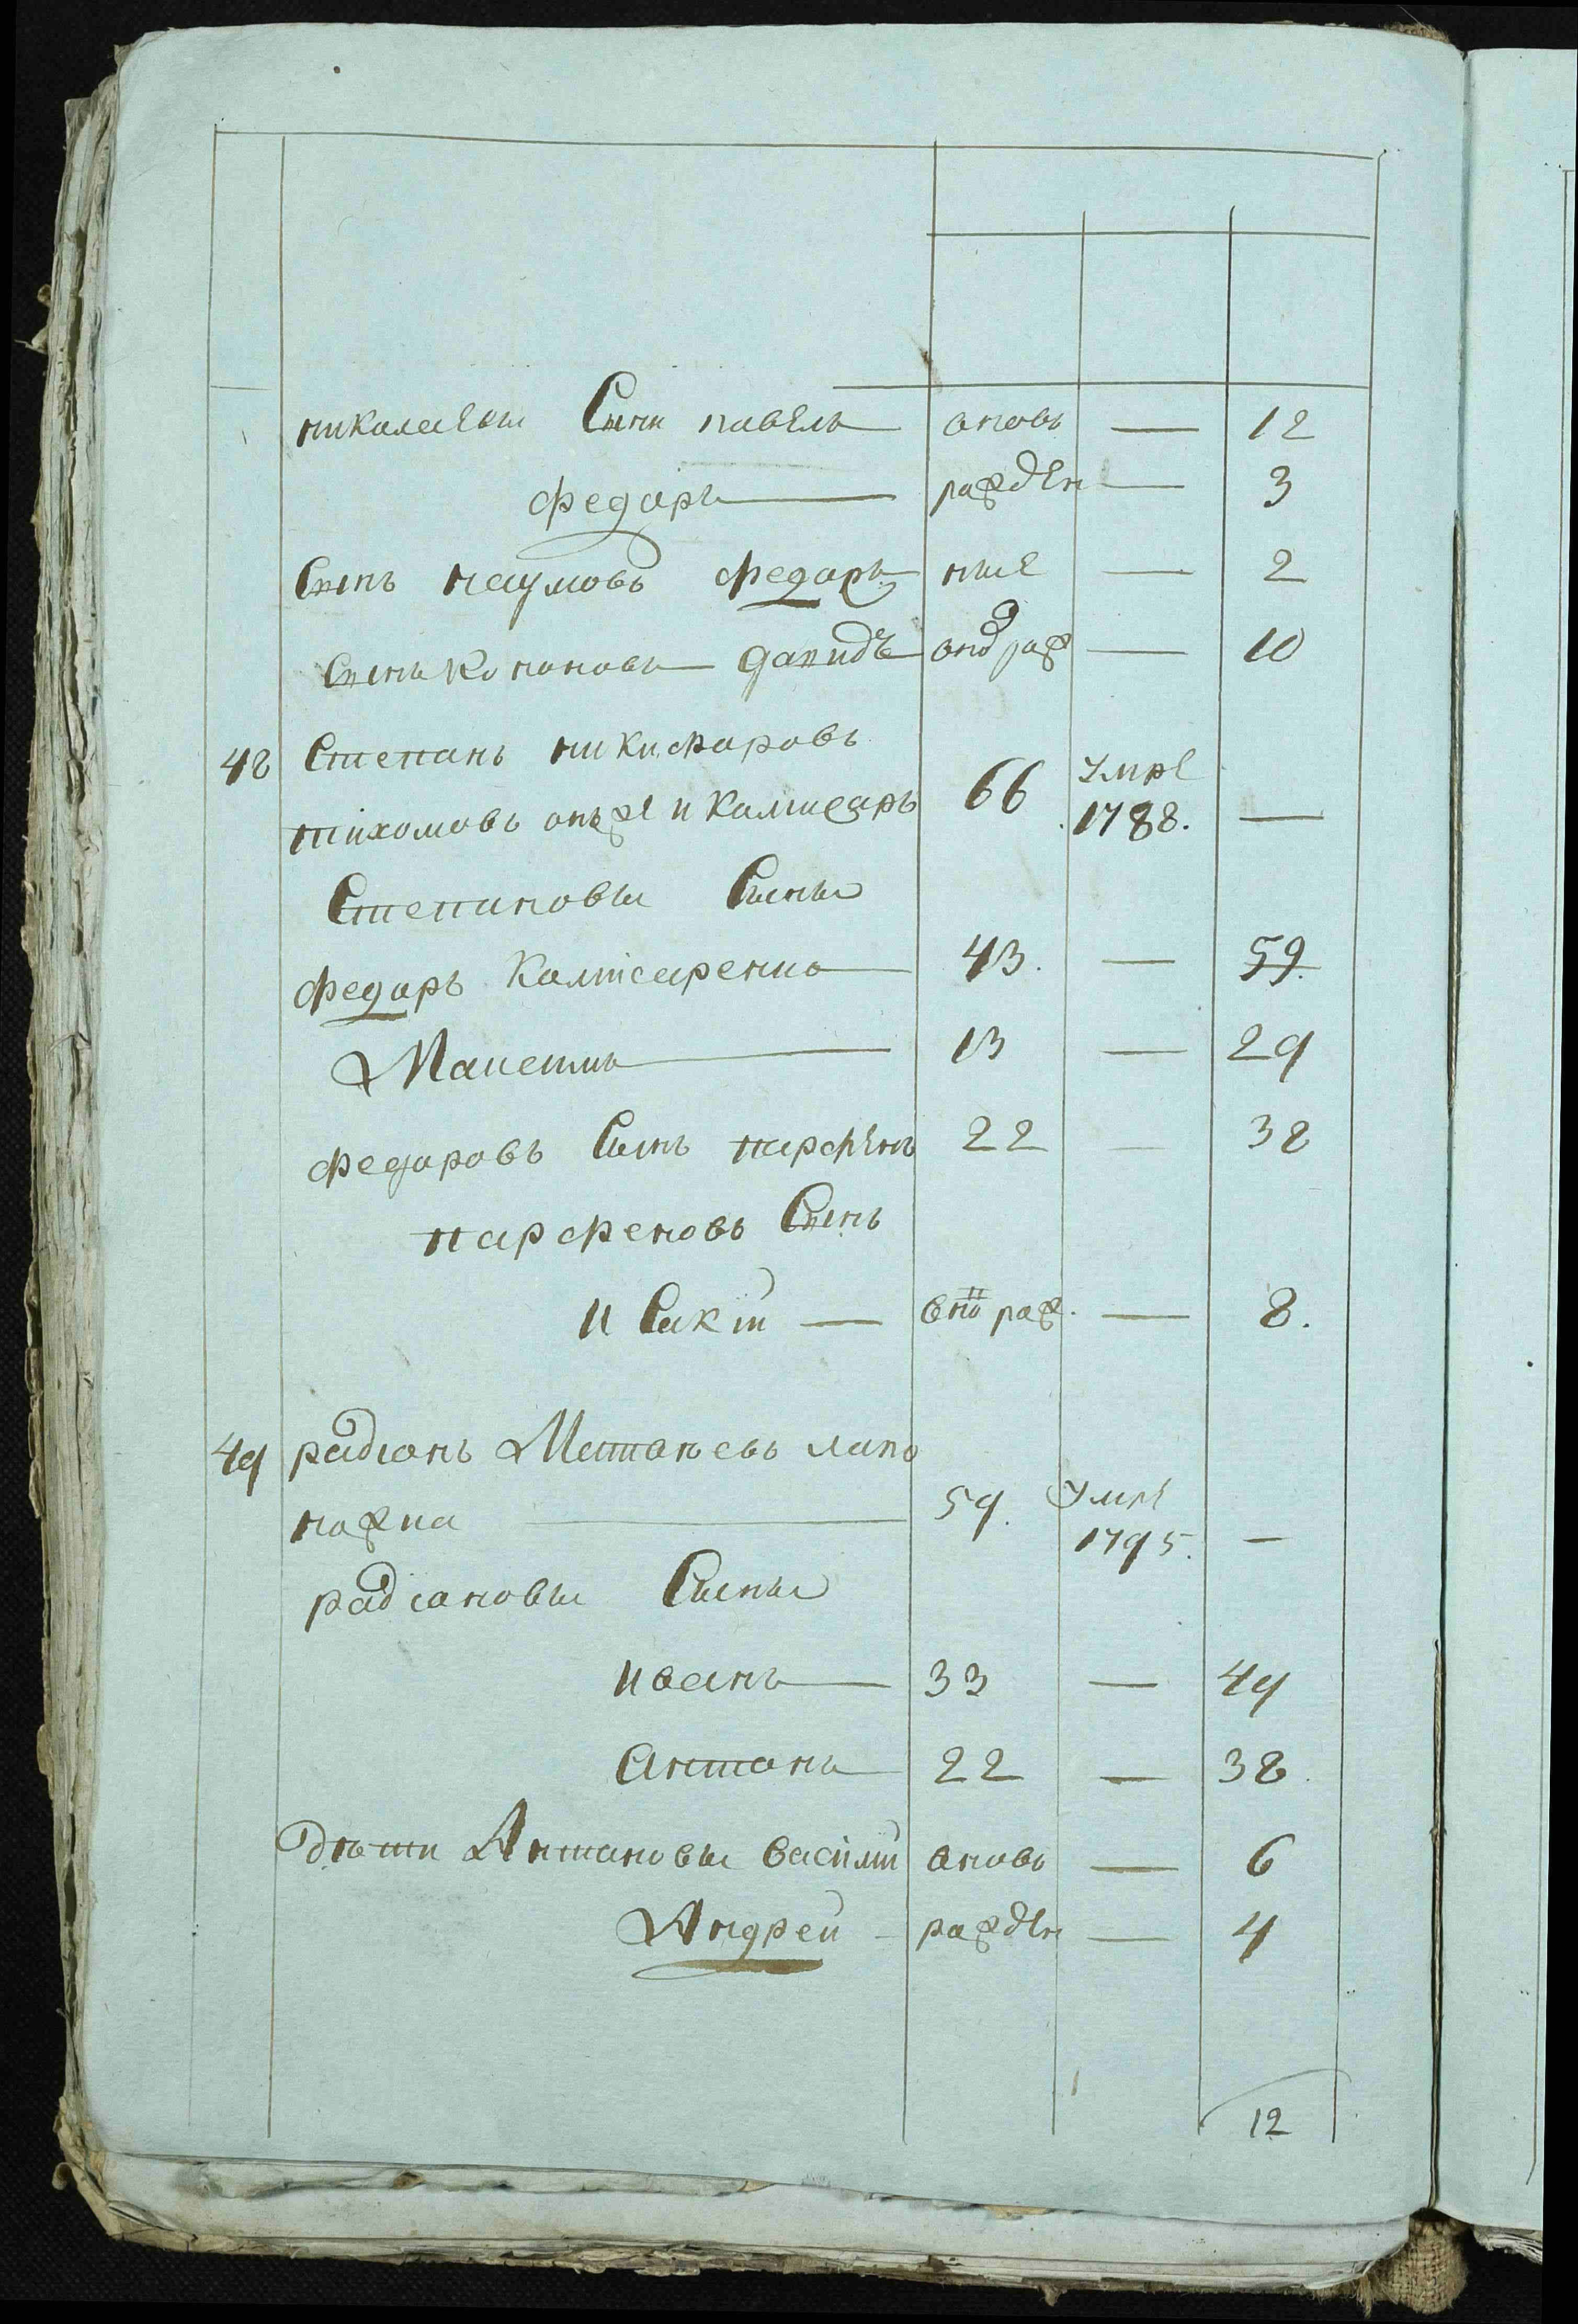 николаевы Сыны павелъ — вновь — 12
федоръ — рожден — 3
Сынъ наумовъ федоръ ные — 2
Сынъ Кононовъ давидъ вно рож — 10
48 Степанъ никифоровъ
тихоновъ онъже и Камисаръ 66 Умре 1788. —
Степановы Сыны
федоръ Камисаренко 43. — 59.
Моисей 13 — 29
федоровъ Сынъ парфенъ 22 — 38
парфеновъ Сынъ
И Сакiй — вно рож. — 8.
49 радионъ Матвѣевъ
ножка 59. Умре 1795. —
радионовы Сыны
иванъ — 33 — 49
антонъ — 22 — 38
Дѣти Антоновы василiй вновь — 6
Андрей — рожден — 4
12